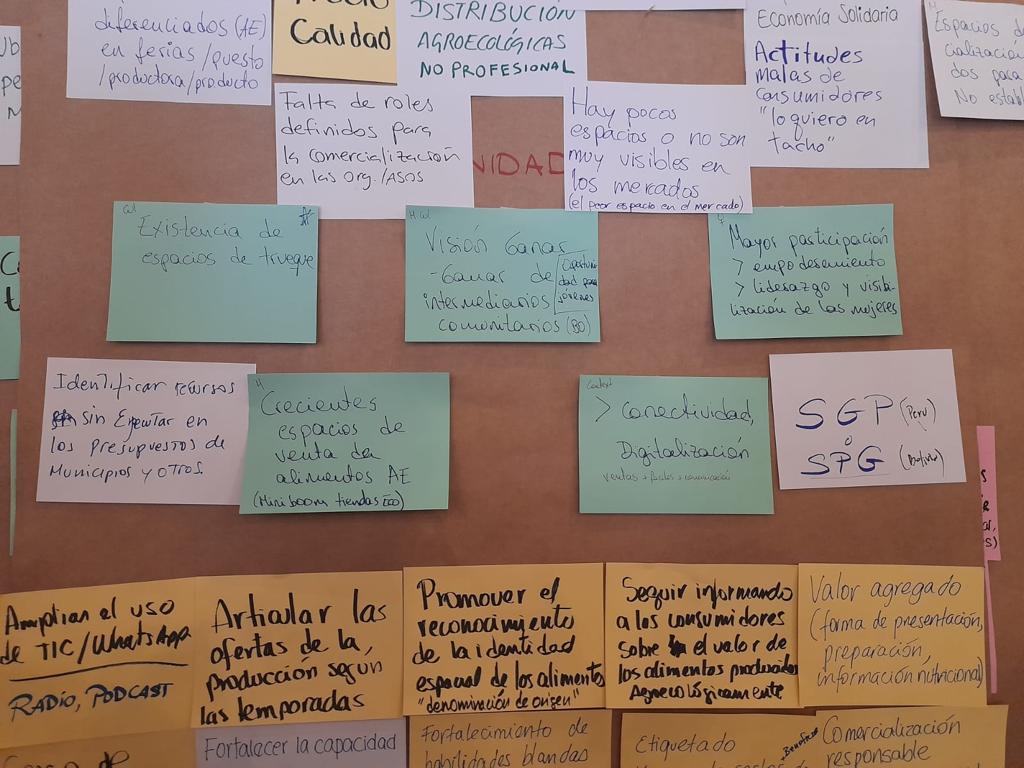 diferenciados (AE)
en ferias/puesto
/productora/producto
Calidad
DISTRIBUCIÓN
AGROECOLÓGICAS
NO PROFESIONAL
Economía Solidaria
Actitudes
malas de
consumidores
"lo quiero en
tacho"
Espacios de
cialización
dos para
No estable
Falta de roles
definidos para
la comercialización
en las Org./ASOS
NIDAD
Hay pocos
espacios o no son
muy visibles en
los mercados
(el peor espacio en el mercado)
Existencia de
espacios de trueque
Visión Ganar
- Ganar de
intermediarios
comunitarios (BO)
Oportuni
dad para
jóvenes
Mayor participación
> empoderamiento
> liderazgo y visibi-
lización de las mujeres
Identificar recursos
sin Ejecutar en
los presupuestos de
Municipios y otros
Crecientes
espacios de
venta de
alimentos AE
(Mini boom tiendas ECO)
Context
> Conectividad,
Digitalización
SGP (Perú)
o
SPG (Bolivia)
Ampliar el uso
de TIC/WhatsApp
RADIO, PODCAST
Articular las
ofertas de la
producción según
las temporadas
Promover el
reconocimiento
de la identidad
espacial de los alimentos
"denominación de origen"
Seguir informando
a los consumidores
sobre el valor de
los alimentos producidos
Agrecológicamente
Valor agregado
(forma de presentación,
preparación,
información nutricional)
Fortalecer la capacidad
Fortalecimiento de
habilidades blandas
Etiquetado
Comercialización
responsable